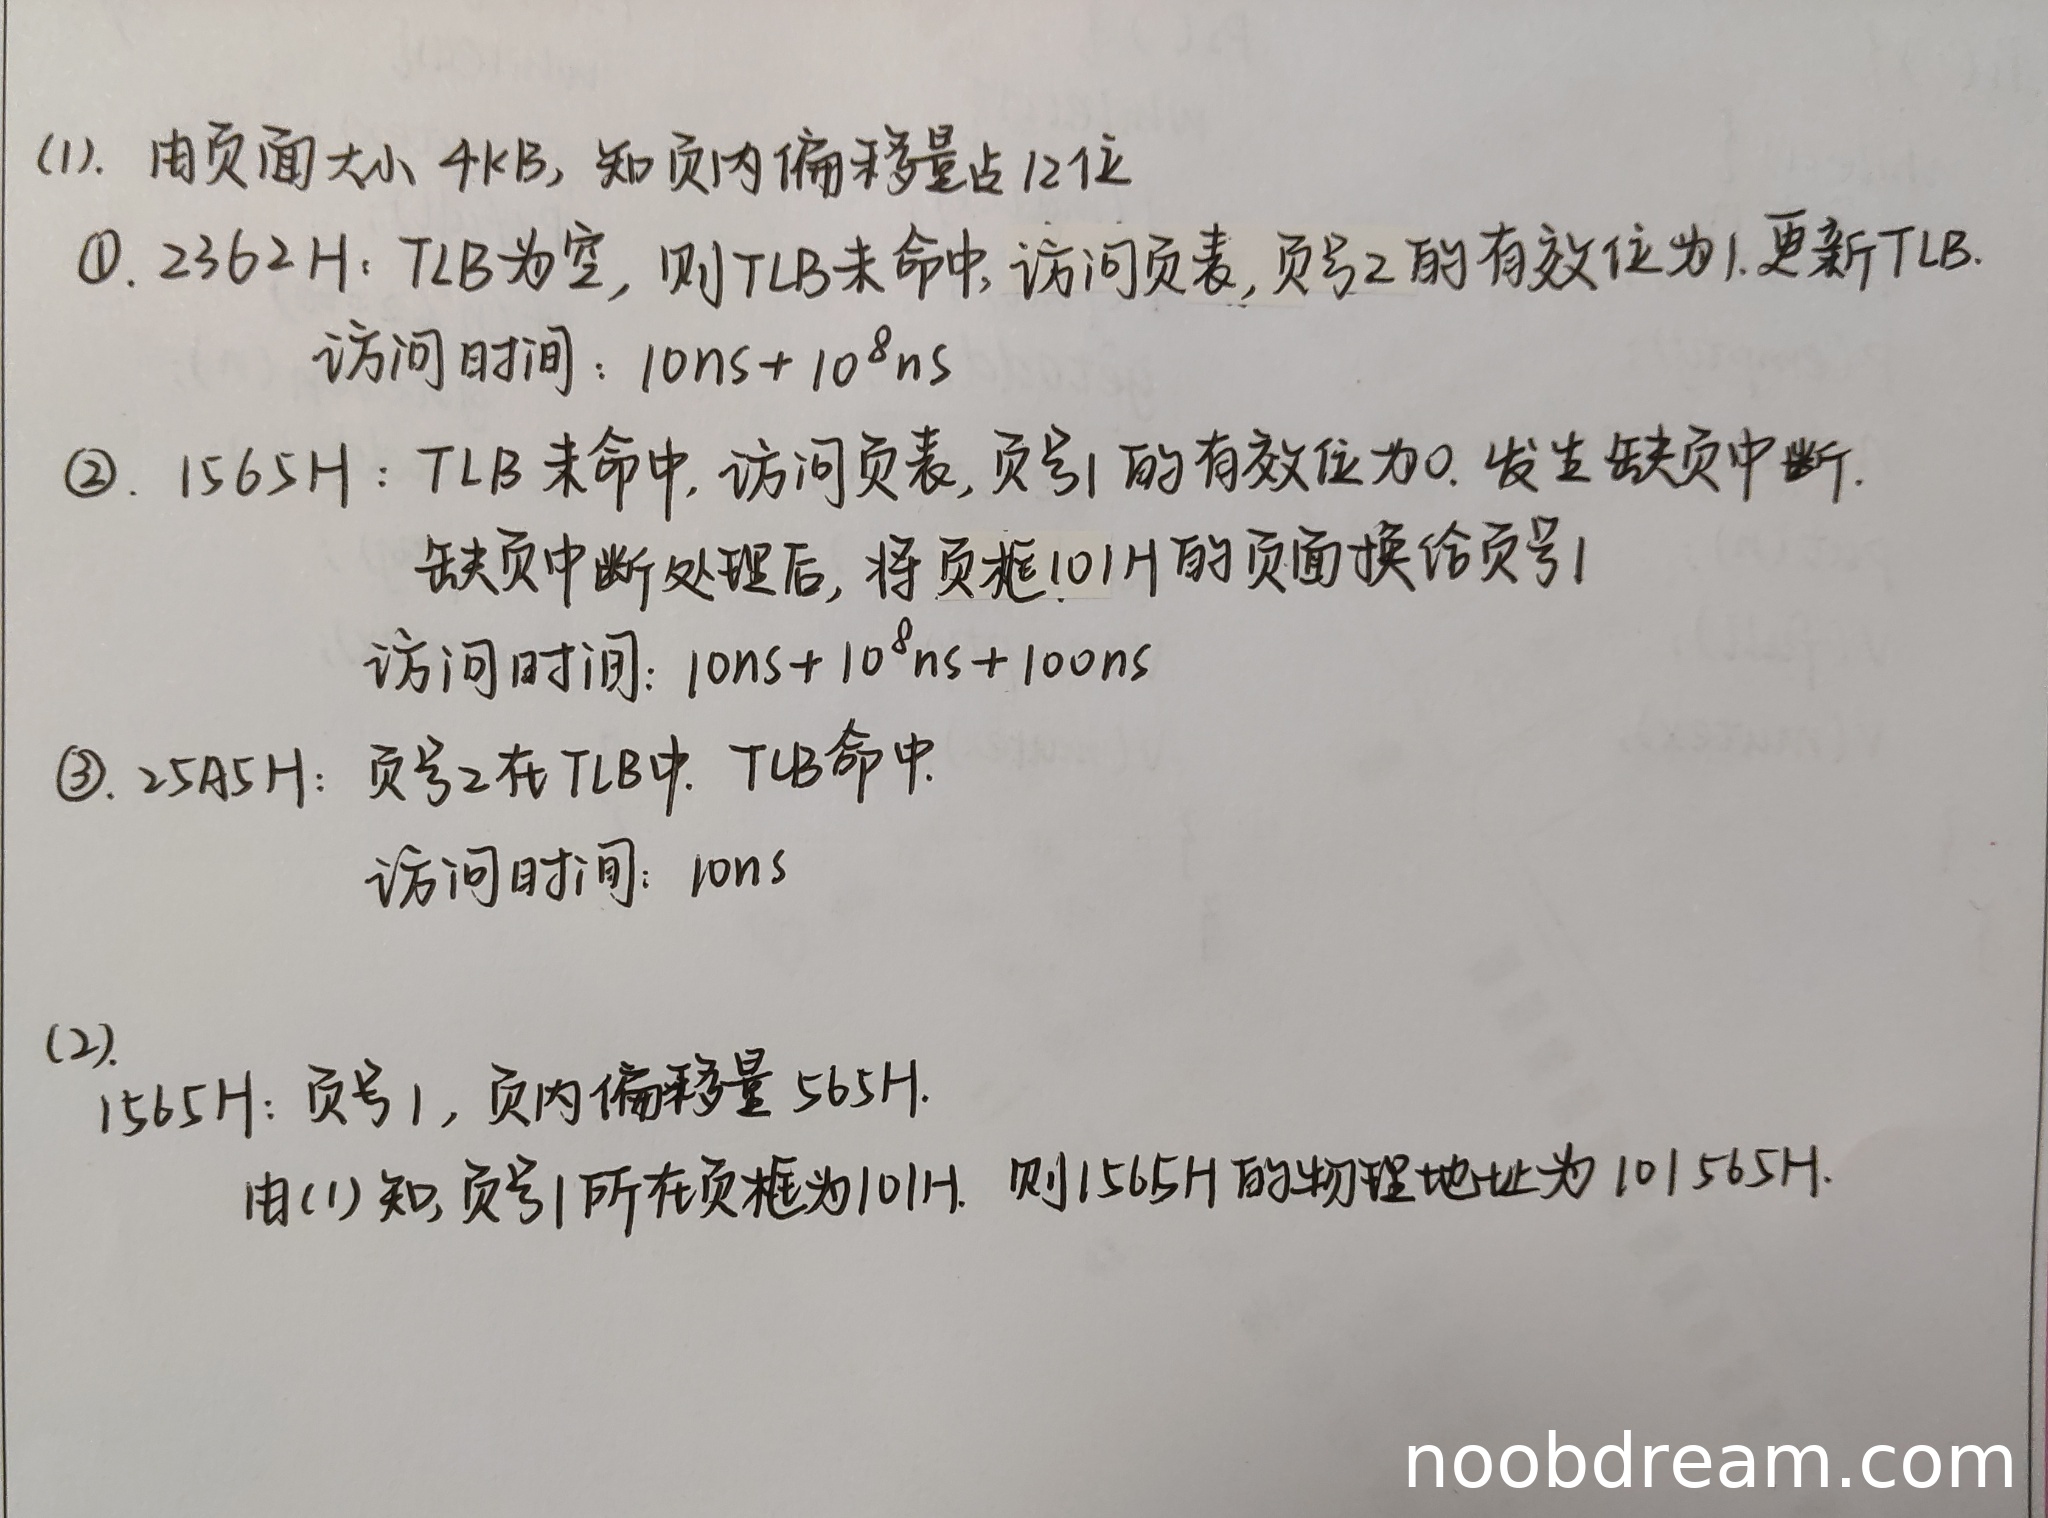 (1). 由页面大小 4KB, 知页内偏移量占12位
①. 2362H: TLB为空, 则TLB未命中, 访问页表, 页号2的有效位为1. 更新TLB.
访问时间: 10ns+10⁸ns
②. 1565H: TLB未命中, 访问页表, 页号1的有效位为0. 发生缺页中断.
缺页中断处理后, 将页框101H的页面换给页号1
访问时间: 10ns+10⁸ns+100ns
③. 25A5H: 页号2在TLB中. TLB命中.
访问时间: 10ns
(2).
1565H: 页号1, 页内偏移量 565H.
由(1)知, 页号1所在页框为101H. 则1565H的物理地址为 101565H.
noobdream.com